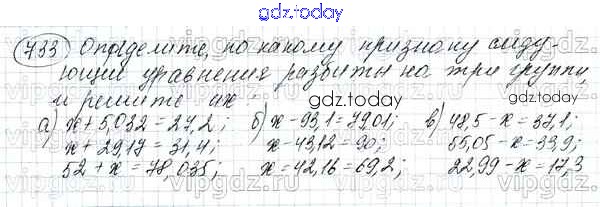 gdz.today
733 Определите, по какому признаку следу-
ющие уравнения разбиты на три группы,
и решите их: gdz.today
а) x + 5,032 = 24,2; б) x - 93,1 = 79,01; в) 48,5 - x = 37,1;
x + 29,17 = 31,4; x - 43,12 = 90; 55,05 - x = 33,9;
52 + x = 78,035; x = 42,16 = 69,2; 22,99 - x = 17,3
gdz.today